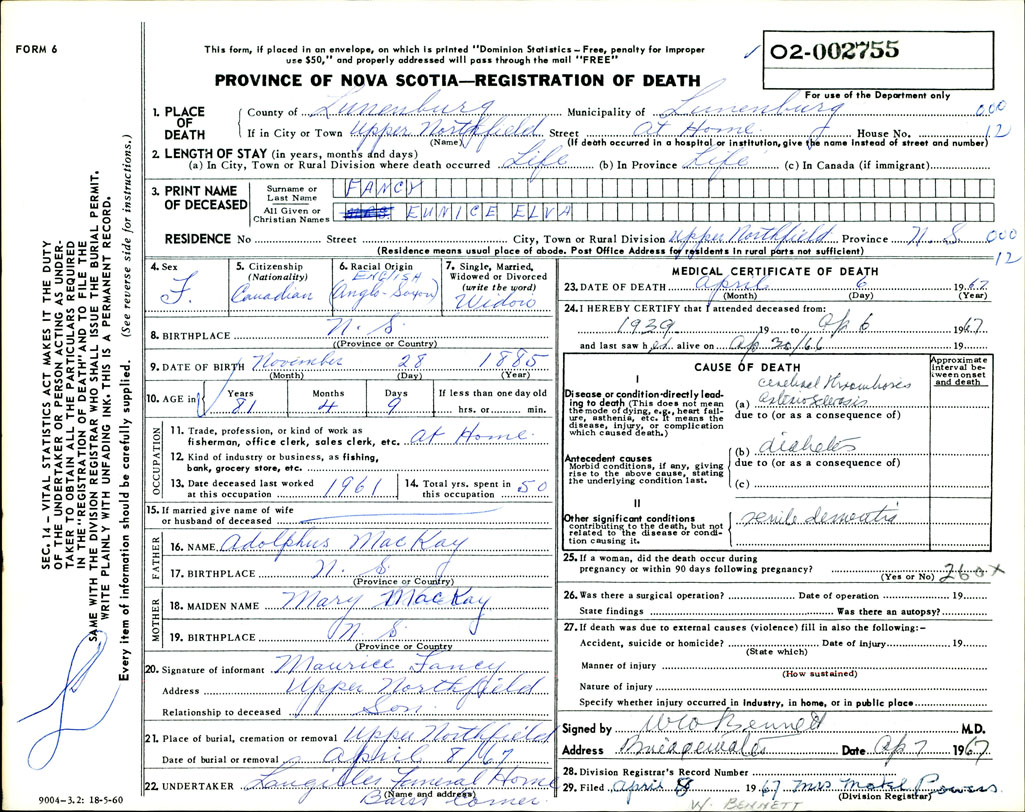 FORM 6
This form, if placed in an envelope, on which is printed "Dominion Statistics – Free, penalty for improper
use $50," and properly addressed will pass through the mail "FREE"
02-002755
PROVINCE OF NOVA SCOTIA—REGISTRATION OF DEATH
For use of the Department only
1. PLACE OF DEATH
County of Lunenburg Municipality of Lunenburg 000
If in City or Town Upper Northfield Street At Home House No. 12
(Name) (If death occurred in a hospital or institution, give the name instead of street and number)
2. LENGTH OF STAY (in years, months and days)
(a) In City, Town or Rural Division where death occurred Life (b) In Province Life (c) In Canada (if immigrant)
3. PRINT NAME OF DECEASED
Surname or Last Name FANCY
All Given or Christian Names MRS EUNICE ELVA
RESIDENCE No Street City, Town or Rural Division Upper Northfield Province N. S. 000
(Residence means usual place of abode. Post Office Address for residents in rural parts not sufficient) 12
4. Sex F.
5. Citizenship (Nationality) Canadian
6. Racial Origin ENGLISH (Anglo-Saxon)
7. Single, Married, Widowed or Divorced (write the word) Widow
8. BIRTHPLACE N. S.
((Province or Country)
9. DATE OF BIRTH November 28 1885
(Month) (Day) (Year)
10. AGE in Years 81 Months 4 Days 9 If less than one day old hrs. or min.
OCCUPATION
11. Trade, profession, or kind of work as
fisherman, office clerk, sales clerk, etc. At Home.
12. Kind of industry or business, as fishing,
bank, grocery store, etc.
13. Date deceased last worked at this occupation 1961
14. Total yrs. spent in this occupation 50
15. If married give name of wife
or husband of deceased
FATHER
16. NAME Adolphus MacKay
17. BIRTHPLACE N. S.
(Province or Country)
MOTHER
18. MAIDEN NAME Mary MacKay
19. BIRTHPLACE N. S.
(Province or Country
20. Signature of informant Maurice Fancy
Address Upper Northfield
Relationship to deceased Son.
21. Place of burial, cremation or removal Upper Northfield
Date of burial or removal April 8/67
22. UNDERTAKER Langilles Funeral Home
(Name and address)
Barss Corner.
MEDICAL CERTIFICATE OF DEATH
23. DATE OF DEATH April 6 1967
(Month) (Day) (Year)
24. I HEREBY CERTIFY that I attended deceased from:
1939 19 to Ap 6 1967
and last saw her alive on Ap 30/66 19
CAUSE OF DEATH
Approximate interval between onset and death
I
Disease or condition directly leading to death (This does not mean
the mode of dying, e.g., heart failure, asthenia, etc. It means the
disease, injury, or complication
which caused death.)
cerebral thrombosis
(a) arteriosclerosis
due to (or as a consequence of)
Antecedent causes
Morbid conditions, if any, giving
rise to the above cause, stating
the underlying condition last.
(b) diabetes
due to (or as a consequence of)
(c)
II
Other significant conditions
contributing to the death, but not
related to the disease or condition causing it.
senile dementia
25. If a woman, did the death occur during
pregnancy or within 90 days following pregnancy? 260X
(Yes or No)
26. Was there a surgical operation? Date of operation 19
State findings Was there an autopsy?
27. If death was due to external causes (violence) fill in also the following:–
Accident, suicide or homicide? Date of injury 19
(State which)
Manner of injury
(How sustained)
Nature of injury
Specify whether injury occurred in industry, in home, or in public place
Signed by W W Bennett M.D.
Address Bridgewater Date Ap 7 1967
28. Division Registrar's Record Number
29. Filed April 8 1967 Mrs Powers
(Division Registrar)
W. BENNETT
SEC. 14 – VITAL STATISTICS ACT MAKES IT THE DUTY
OF THE UNDERTAKER OR PERSON ACTING AS UNDERTAKER TO OBTAIN ALL THE PARTICULARS REQUIRED
IN THE "REGISTRATION OF DEATH" AND TO FILE THE
SAME WITH THE DIVISION REGISTRAR WHO SHALL ISSUE THE BURIAL PERMIT.
WRITE PLAINLY WITH UNFADING INK. THIS IS A PERMANENT RECORD.
Every item of information should be carefully supplied. (See reverse side for instructions.)
9004-3.2: 18-5-60